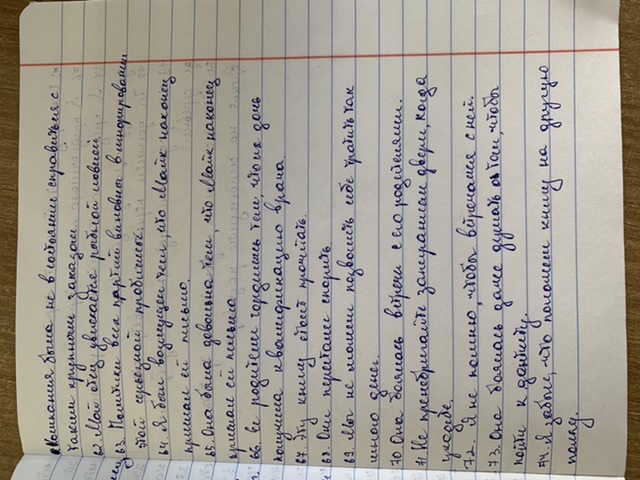 Компания была не в состоянии справиться с
таким крупным заказом.
62. Мой отец увлекается рыбной ловлей.
63. Политики всех партий виновны в игнорировании
этой серьезной проблемы.
64. Я был возмущен тем, что Майк наконец
прислал ей письмо.
65. Она была довольна тем, что Майк наконец
прислал ей письмо
66. Ее родители гордились тем, что их дочь
получила квалификацию врача.
67. Эту книгу стоит прочитать.
68. Они перестали спорить
69. Мы не можем позволить себе тратить так
много денег.
70. Она боялась встречи с его родителями.
71. Не пренебрегайте запиранием двери, когда
уходите.
72. Я не помню, чтобы встречался с ней.
73. Она боялась даже думать о том, чтобы
пойти к дантисту.
74. Я забыл, что положил книгу на другую
полку.